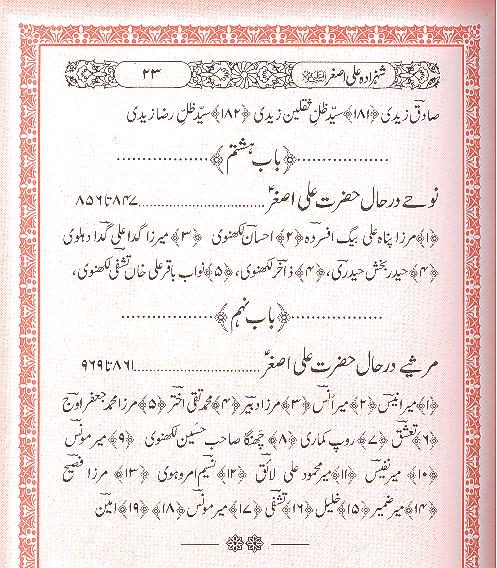 شہزادہ علی اصغرؑ ۲۳
صادق زیدی ﴿۱۸۱﴾ سیّد ظلِ ثقلین زیدی ﴿۱۸۲﴾ سیّد ظلِ رضا زیدی
﴿باب ہشتم﴾
نوحے درحال حضرت علی اصغرؑ ۸۴۷ تا ۸۵۶
﴿۱﴾ مرزا پناہ علی بیگ افسردہ ﴿۲﴾ احسان لکھنوی ﴿۳﴾ میرزا گدا علی گدا دہلوی
﴿۴﴾ حیدر بخش حیدری، ﴿۴﴾ ذاخر لکھنوی، ﴿۵﴾ نواب باقر علی خاں تشفی لکھنوی،
﴿باب نہم﴾
مرثیے درحال حضرت علی اصغرؑ ۸۶۱ تا ۹۶۹
﴿۱﴾ میر انیس ﴿۲﴾ میر انس ﴿۳﴾ مرزا دبیر ﴿۴﴾ محمد تقی اختر ﴿۵﴾ مرزا محمد جعفر اوج
﴿۶﴾ تعشق ﴿۷﴾ روپ کماری ﴿۸﴾ چھنگا صاحب حسین لکھنوی ﴿۹﴾ میر مونس
﴿۱۰﴾ میر نفیس ﴿۱۱﴾ میر محمود علی لائق ﴿۱۲﴾ نسیم امروہوی ﴿۱۳﴾ مرزا فصیح
﴿۱۴﴾ میر ضمیر ﴿۱۵﴾ خلیل ﴿۱۶﴾ تشفی ﴿۱۷﴾ میر مونس ﴿۱۸﴾ ﴿۱۹﴾ امین